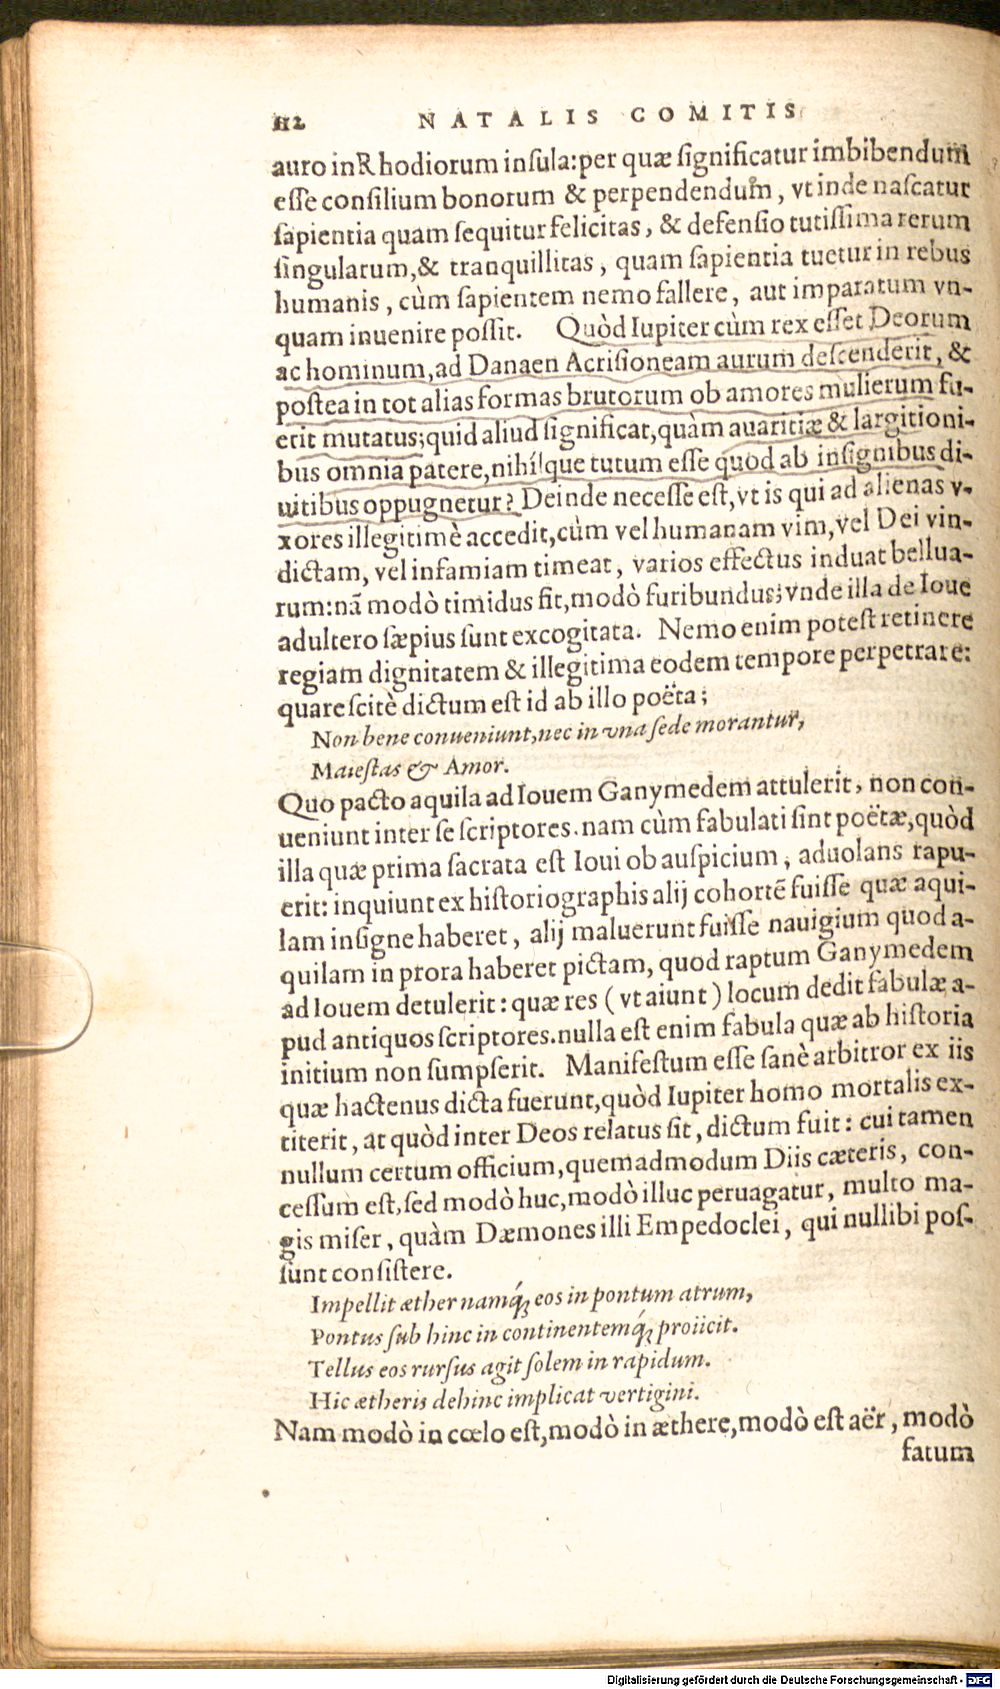 112 NATALIS COMITIS
auro in Rhodiorum insula: per quæ significatur imbibendum
esse consilium bonorum & perpendendum, vt inde nascatur
sapientia quam sequitur felicitas, & defensio tutissima rerum
singularum, & tranquillitas, quam sapientia tuetur in rebus
humanis, cùm sapientem nemo fallere, aut imparatum vn-
quam inuenire possit. Quòd Iupiter cùm rex esset Deorum
ac hominum, ad Danaen Acrisioneam aurum descenderit, &
postea in tot alias formas brutorum ob amores mulierum fu-
erit mutatus; quid aliud significat, quàm auaritiæ & largitioni-
bus omnia patere, nihilque tutum esse quod ab insignibus di-
uitibus oppugnetur? Deinde necesse est, vt is qui ad alienas v-
xores illegitimè accedit, cùm vel humanam vim, vel Dei vin-
dictam, vel infamiam timeat, varios effectus induat bellua-
rum: nã modò timidus fit, modò furibundus; vnde illa de Ioue
adultero sæpius sunt excogitata. Nemo enim potest retinere
regiam dignitatem & illegitima eodem tempore perpetrare:
quare scitè dictum est id ab illo poëta;
Non bene conueniunt, nec in vna sede morantur,
Maiestas & Amor.
Quo pacto aquila ad Iouem Ganymedem attulerit, non con-
ueniunt inter se scriptores. nam cùm fabulati sint poëtæ, quòd
illa quæ prima sacrata est Ioui ob auspicium, aduolans rapu-
erit: inquiunt ex historiographis alij cohortẽ fuisse quæ aqui-
lam insigne haberet, alij maluerunt fuisse nauigium quod a-
quilam in prora haberet pictam, quod raptum Ganymedem
ad Iouem detulerit: quæ res (vt aiunt) locum dedit fabulæ a-
pud antiquos scriptores. nulla est enim fabula quæ ab historia
initium non sumpserit. Manifestum esse sanè arbitror ex iis
quæ hactenus dicta fuerunt, quòd Iupiter homo mortalis ex-
titerit, at quòd inter Deos relatus sit, dictum fuit: cui tamen
nullum certum officium, quemadmodum Diis cæteris, con-
cessum est, sed modò huc, modò illuc peruagatur, multo ma-
gis miser, quàm Dæmones illi Empedoclei, qui nullibi pos-
sunt consistere.
Impellit æther namq́; eos in pontum atrum,
Pontus sub hinc in continentemq́; proiicit.
Tellus eos rursus agit solem in rapidum.
Hic ætheris dehinc implicat vertigini.
Nam modò in cœlo est, modò in æthere, modò est aër, modò
fatum
Digitalisierung gefördert durch die Deutsche Forschungsgemeinschaft - DFG